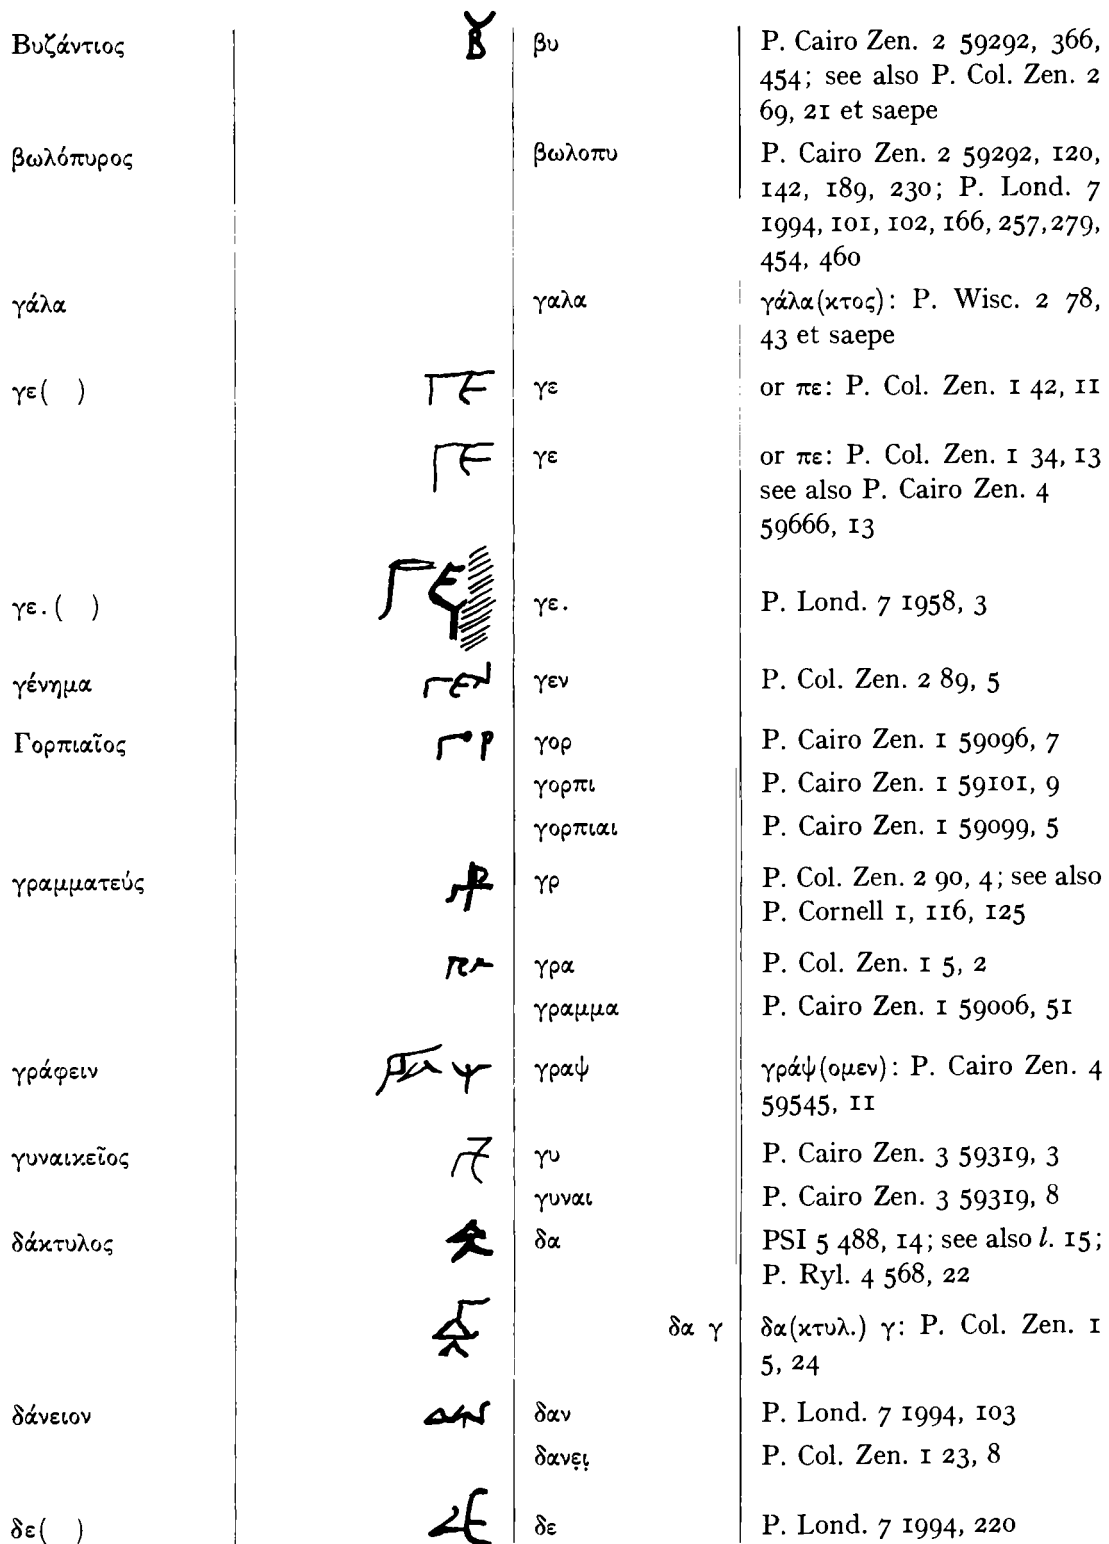 Βυζάντιος βυ P. Cairo Zen. 2 59292, 366,
454; see also P. Col. Zen. 2
69, 21 et saepe
βωλόπυρος βωλοπυ P. Cairo Zen. 2 59292, 120,
142, 189, 230; P. Lond. 7
1994, 101, 102, 166, 257, 279,
454, 460
γάλα γαλα γάλα(κτος): P. Wisc. 2 78,
43 et saepe
γε( ) γε or πε: P. Col. Zen. 1 42, 11
γε or πε: P. Col. Zen. 1 34, 13
see also P. Cairo Zen. 4
59666, 13
γε.( ) γε. P. Lond. 7 1958, 3
γένημα γεν P. Col. Zen. 2 89, 5
Γορπιαῖος γορ P. Cairo Zen. 1 59096, 7
γορπι P. Cairo Zen. 1 59101, 9
γορπιαι P. Cairo Zen. 1 59099, 5
γραμματεύς γρ P. Col. Zen. 2 90, 4; see also
P. Cornell 1, 116, 125
γρα P. Col. Zen. 1 5, 2
γραμμα P. Cairo Zen. 1 59006, 51
γράφειν γραψ γράψ(ομεν): P. Cairo Zen. 4
59545, 11
γυναικεῖος γυ P. Cairo Zen. 3 59319, 3
γυναι P. Cairo Zen. 3 59319, 8
δάκτυλος δα PSI 5 488, 14; see also l. 15;
P. Ryl. 4 568, 22
δα γ δα(κτυλ.) γ: P. Col. Zen. 1
5, 24
δάνειον δαν P. Lond. 7 1994, 103
δανε̣ι̣ P. Col. Zen. 1 23, 8
δε( ) δε P. Lond. 7 1994, 220